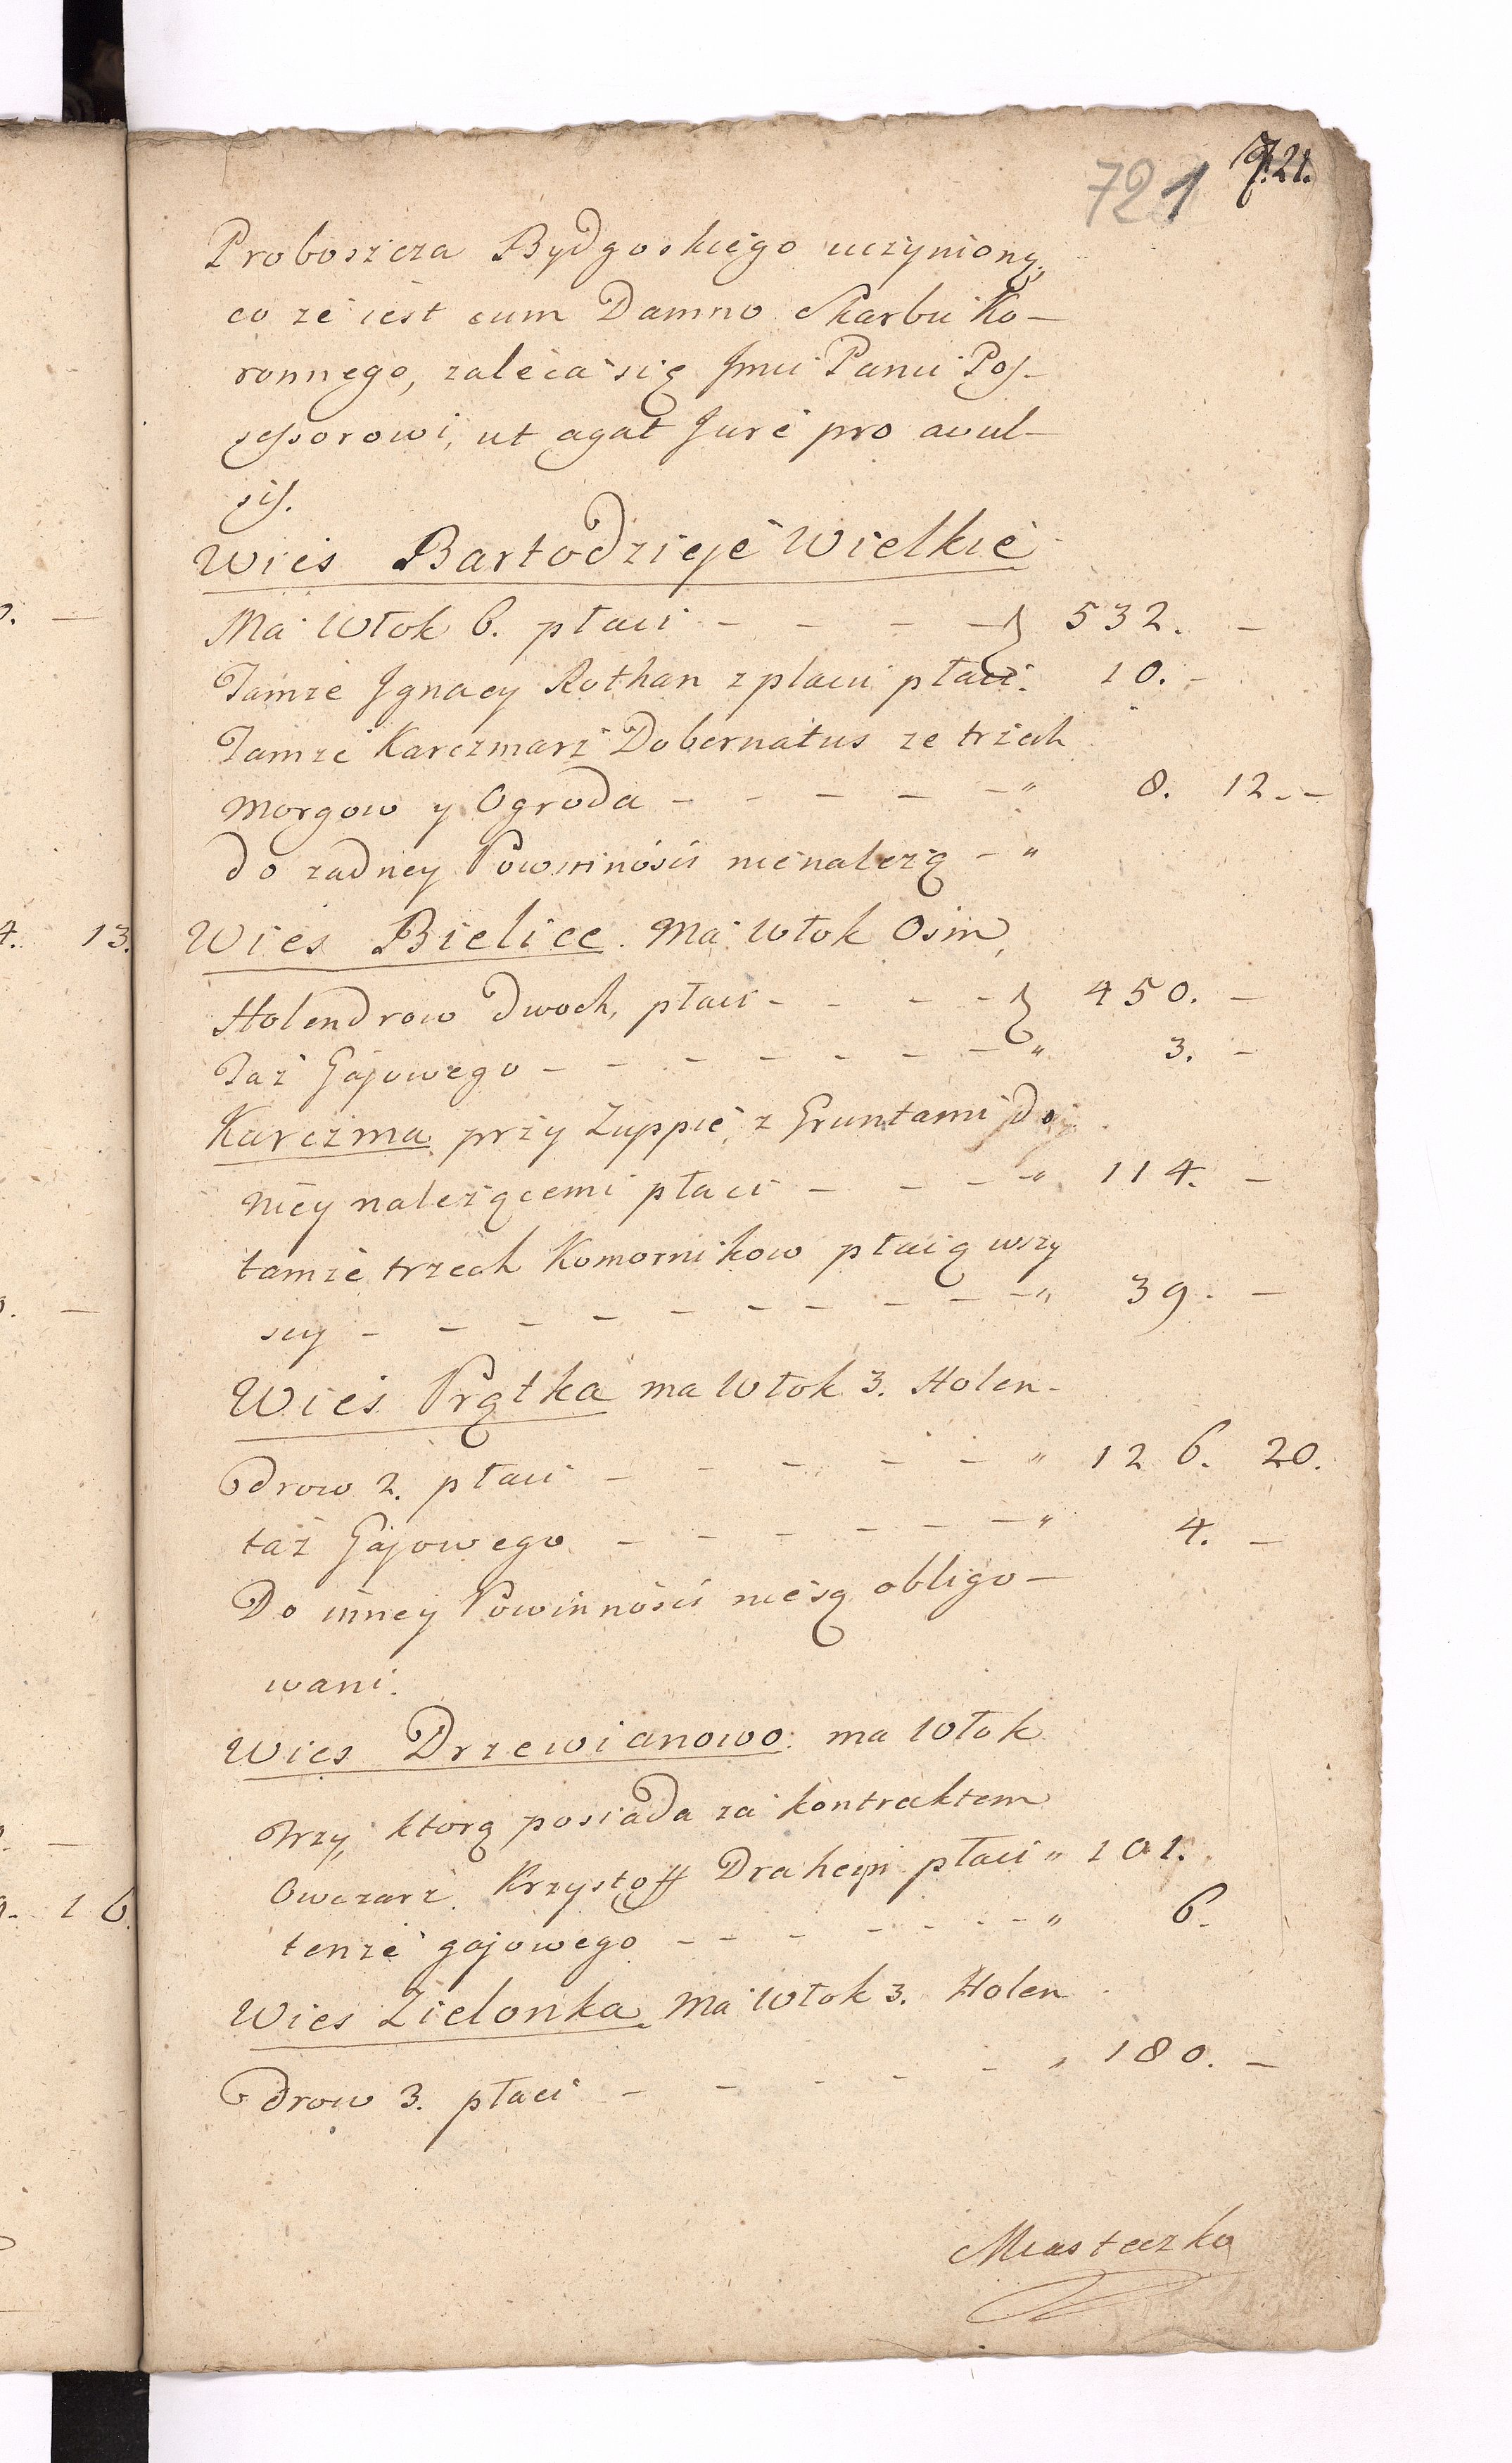 721 721.
Proboszcza Bydgoskiego uczyniony,
co że iest cum Damno Skarbu Ko-
ronnego, zaleca się Jmci Panu Pos-
sessorowi, ut agat Jure pro avul-
sis.
Wieś Bartodzieje Wielkie
Ma Włok 6. płaci - - - - 532. -
Tamże Jgnacy Rothan z placu płaci. 10. -
Tamże Karczmarz Dobernatus ze trzech
Morgow y Ogroda - - - - - " 8. 12. -
do zadney Powinności nienależą - "
Wies Bielice. Ma Włok Osm,
Holendrow Dwoch, płaci - - - - 450. -
Taż Gajowego - - - - - - - " 3. -
Karczma przy Zuppie, z Gruntami do
niey należącemi płaci - - - - " 114. -
tamże trzech Komornikow płacą wszy
scy - - - - - - - - - - " 39. -
Wieś Prątka ma Włok 3. Holen-
drow 2. płaci - - - - - - " 126. 20.
taż Gajowego - - - - - - " 4. -
Do inney Powinności niesą obligo-
wani.
Wies Drzewianowo: ma Włok
Trzy, ktorą posiada za kontraktem
Owczarz Krzysztoff Draheim płaci " 101.
tenże gajowego - - - - - - - " 6.
Wies Zielonka. Ma Włok 3. Holen
drow 3. płaci - - - - - - " 180. -
Miasteczko
4. 13.
16.